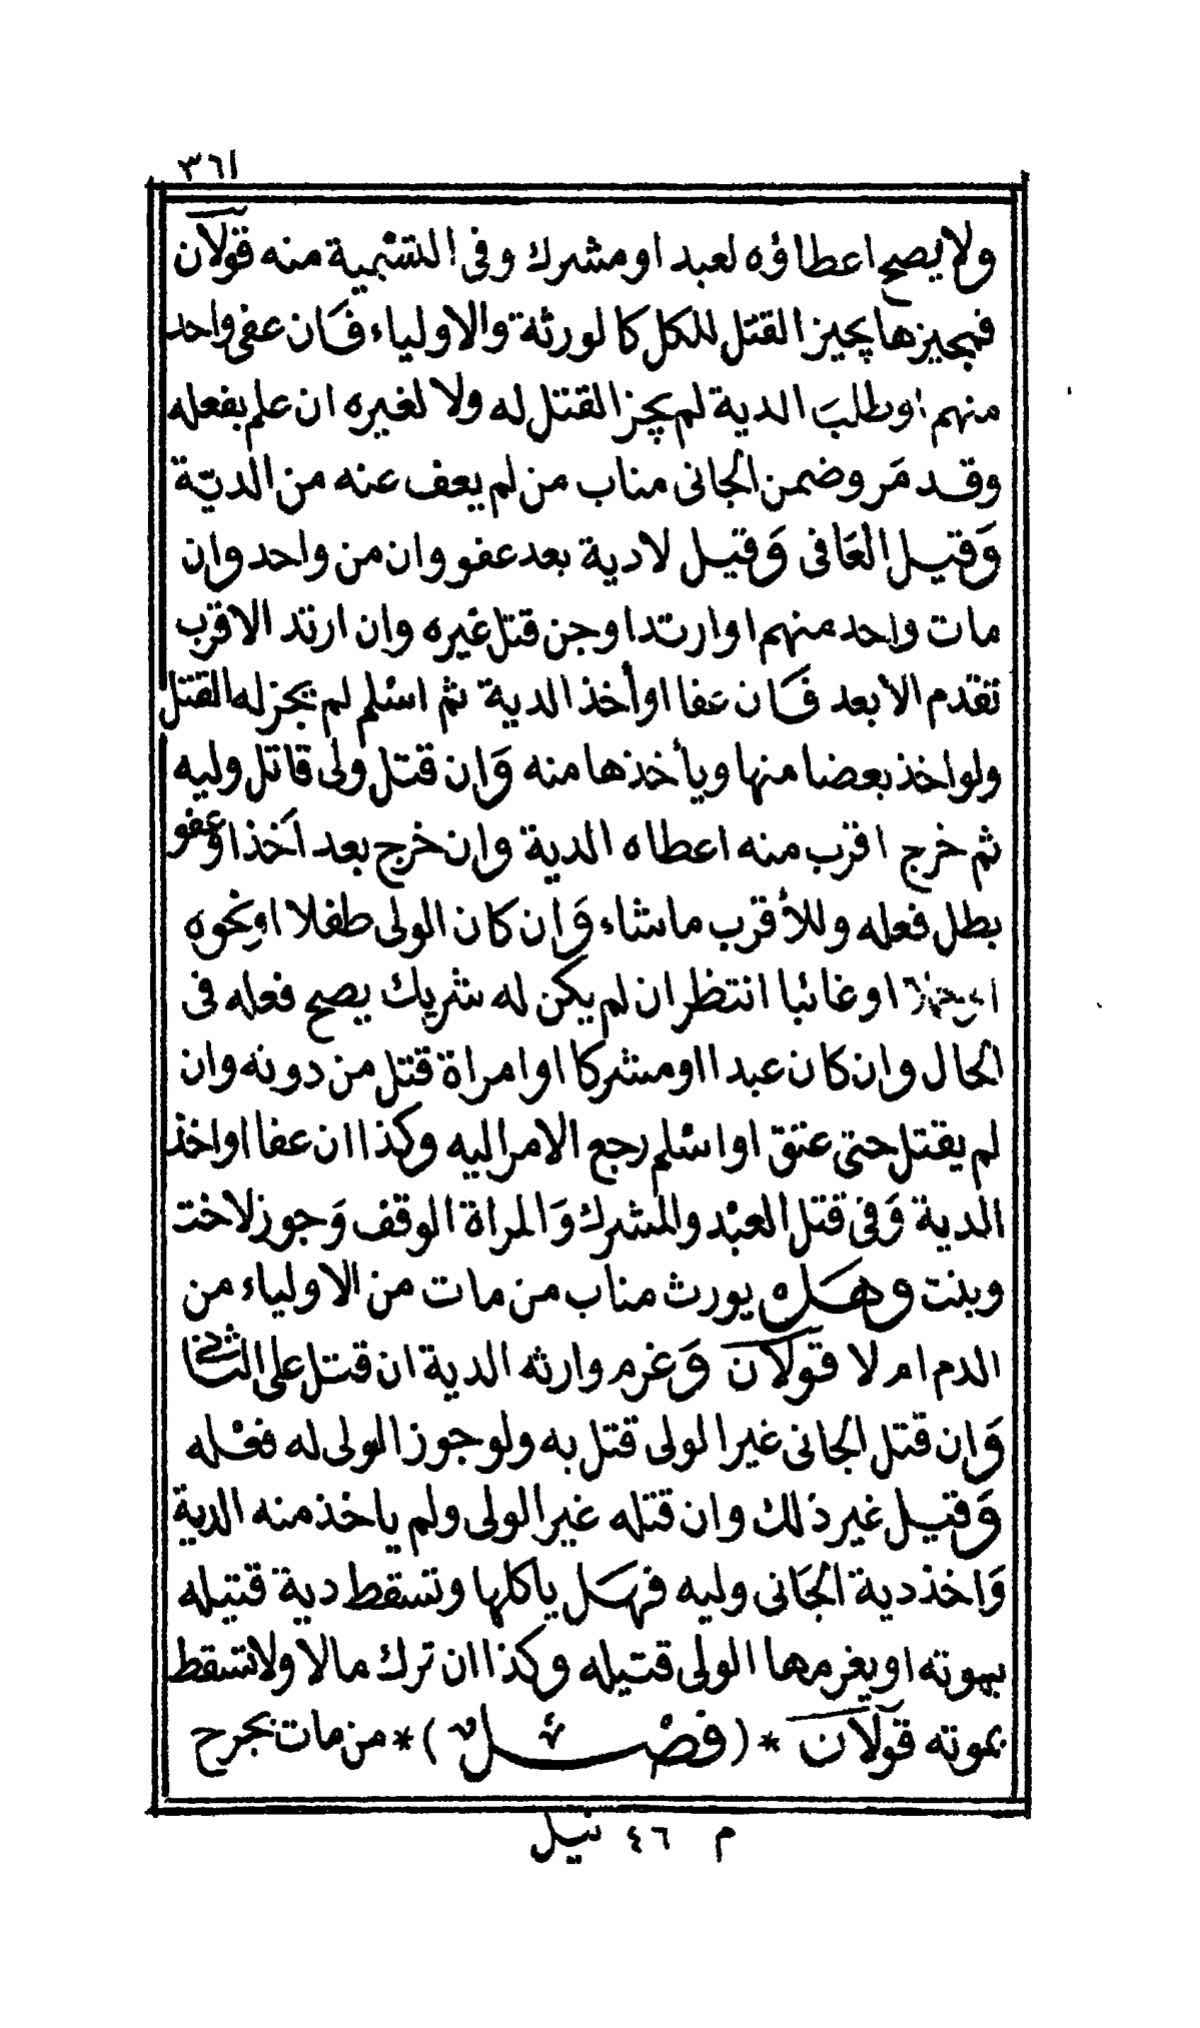 ٣٦١
ولا يصح اعطاؤه لعبد او مشرك وفى التسمية منه قولان
فمجيزها يجيز القتل للكل كالورثة والاولياء فان عفى واحد
منهم او طلب الدية لم يجز القتل له ولا لغيره ان علم بفعله
وقد مر وضمن الجانى مناب من لم يعف عنه من الدية
وقيل العافى وقيل لادية بعد عفو وان من واحد وان
مات واحد منهم او ارتد او جن قتل غيره وان ارتد الاقرب
تقدم الأبعد فان عفا او أخذ الدية ثم اسلم لم يجز له القتل
ولو اخذ بعضا منها ويأخذها منه وان قتل ولى قاتل وليه
ثم خرج اقرب منه اعطاه الدية وان خرج بعد اخذ او عفو
بطل فعله وللأقرب ما شاء وان كان الولى طفلا او نحوه
او غائبا انتظر ان لم يكن له شريك يصح فعله فى
الحال وان كان عبدا او مشركا او امراة قتل من دونه وان
لم يقتل حتى عتق او اسلم رجع الامر اليه وكذا ان عفا او اخذ
الدية وفى قتل العبد والمشرك والمراة الوقف وجوز لاخت
وبنت وهل يورث مناب من مات من الاولياء من
الدم ام لا قولان وغرم وارثه الدية ان قتل على الثانى
وان قتل الجانى غير الولى قتل به ولو جوز الولى له فعله
وقيل غير ذلك وان قتله غير الولى ولم ياخذ منه الدية
واخذ دية الجانى وليه فهل ياكلها وتسقط دية قتيله
بموته او يغرمها الولى قتيله وكذا ان ترك مالا ولا تسقط
بموته قولان * ( فصل ) * من مات بجرح
م ٤٦ نيل